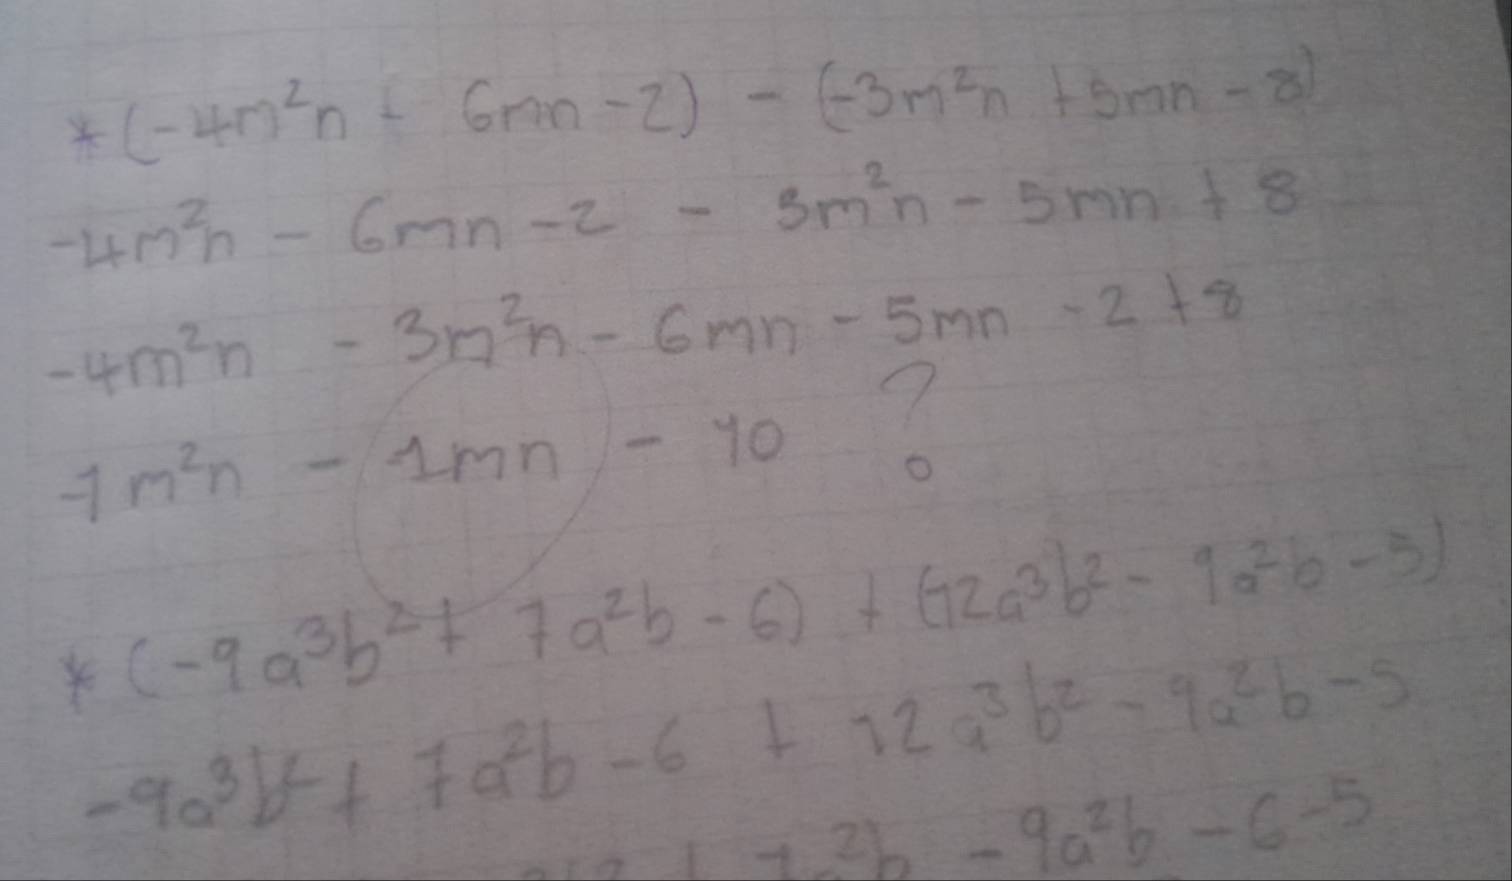 * (-4m²n - 6mn - 2) - (-3m²n + 5mn - 8)
-4m²n - 6mn - 2 - 3m²n - 5mn + 8
-4m²n - 3m²n - 6mn - 5mn - 2 + 8
-1m²n - 1mn - 10 ?
* (-9a³b² + 7a²b - 6) + (12a³b² - 9a²b - 5)
-9a³b² + 7a²b - 6 + 12a³b² - 9a²b - 5
7a²b - 9a²b - 6 - 5